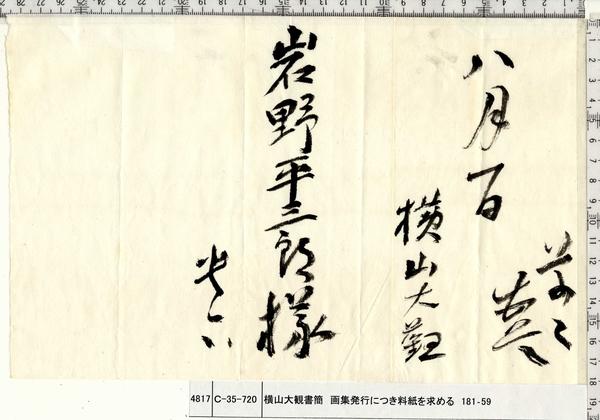 八月一日
横山大観
岩野平三郎様
4817 C-35-720 横山大観書簡 画集発行につき料紙を求める 181-59